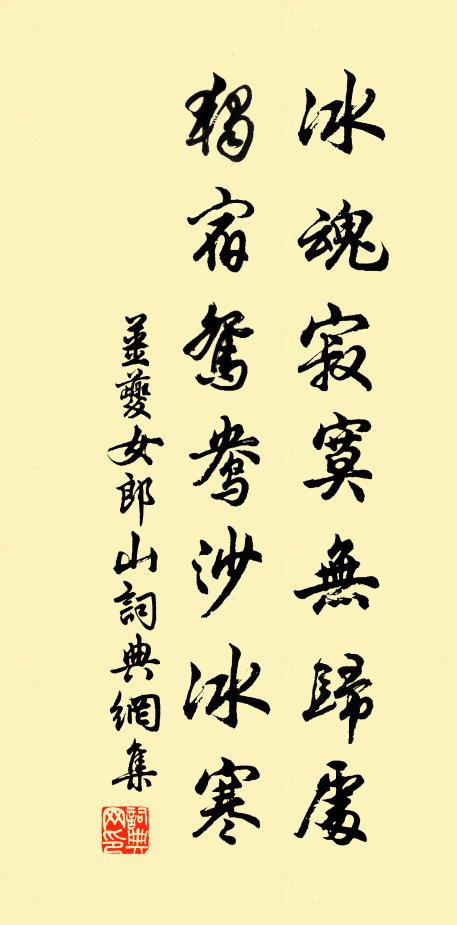 冰魂寂寞無歸處
獨宿鴛鴦沙冰寒
姜夔女郎山詞典網集
詞典網印